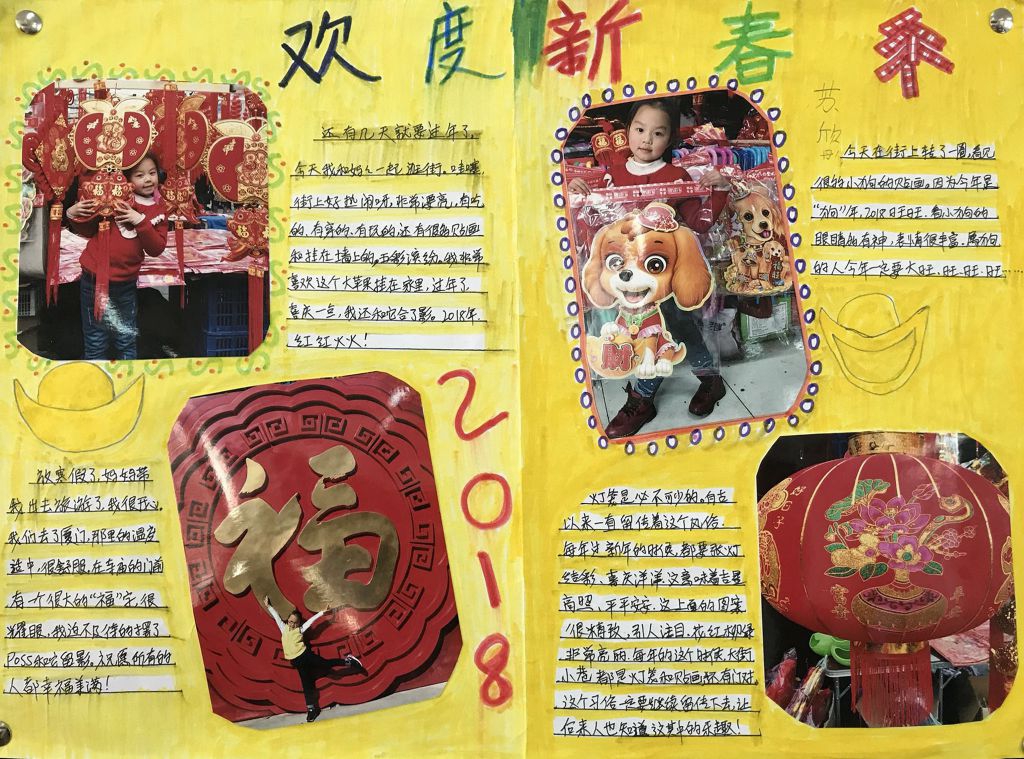 欢度新春
苏
欣
还有几天就要过年了。
今天我和妈妈一起逛街。哇噻，
街上好热闹呀，非常漂亮，有吃
的、有穿的、有玩的还有很多贴画
和挂在墙上的，五彩缤纷，我非常
喜欢这个大苹果挂在家里，过年了
喜庆一点，我还和它合了影。2018年，
红红火火！
今天在街上转了一圈，看见
很多小狗的贴画。因为今年是
"狗"年，2018旺旺。看小狗的
眼睛炯有神，表情很丰富。属狗
的人今年一定要大旺、旺、旺、旺……
2018
放寒假了，妈妈带
我出去旅游了，我很开心。
我们去了厦门，那里的温度
适中，很舒服，在车站的门前
有一个很大的"福"字，很
耀眼，我迫不及待的摆了
Poss和它留影。祝愿所有的
人都幸福美满！
灯笼是必不可少的。自古
以来一直留传着这个风俗。
每年过新年的时候，都要张灯
结彩、喜庆洋洋，这意味着吉星
高照，平平安安。这上面的图案
很精致，引人注目，花红柳绿
非常亮丽。每年的这个时候，大街
小巷都是灯笼和贴画还有门对
这个习俗一定要继续留传下去，让
后来人也知道这其中的乐趣！
福
財
福